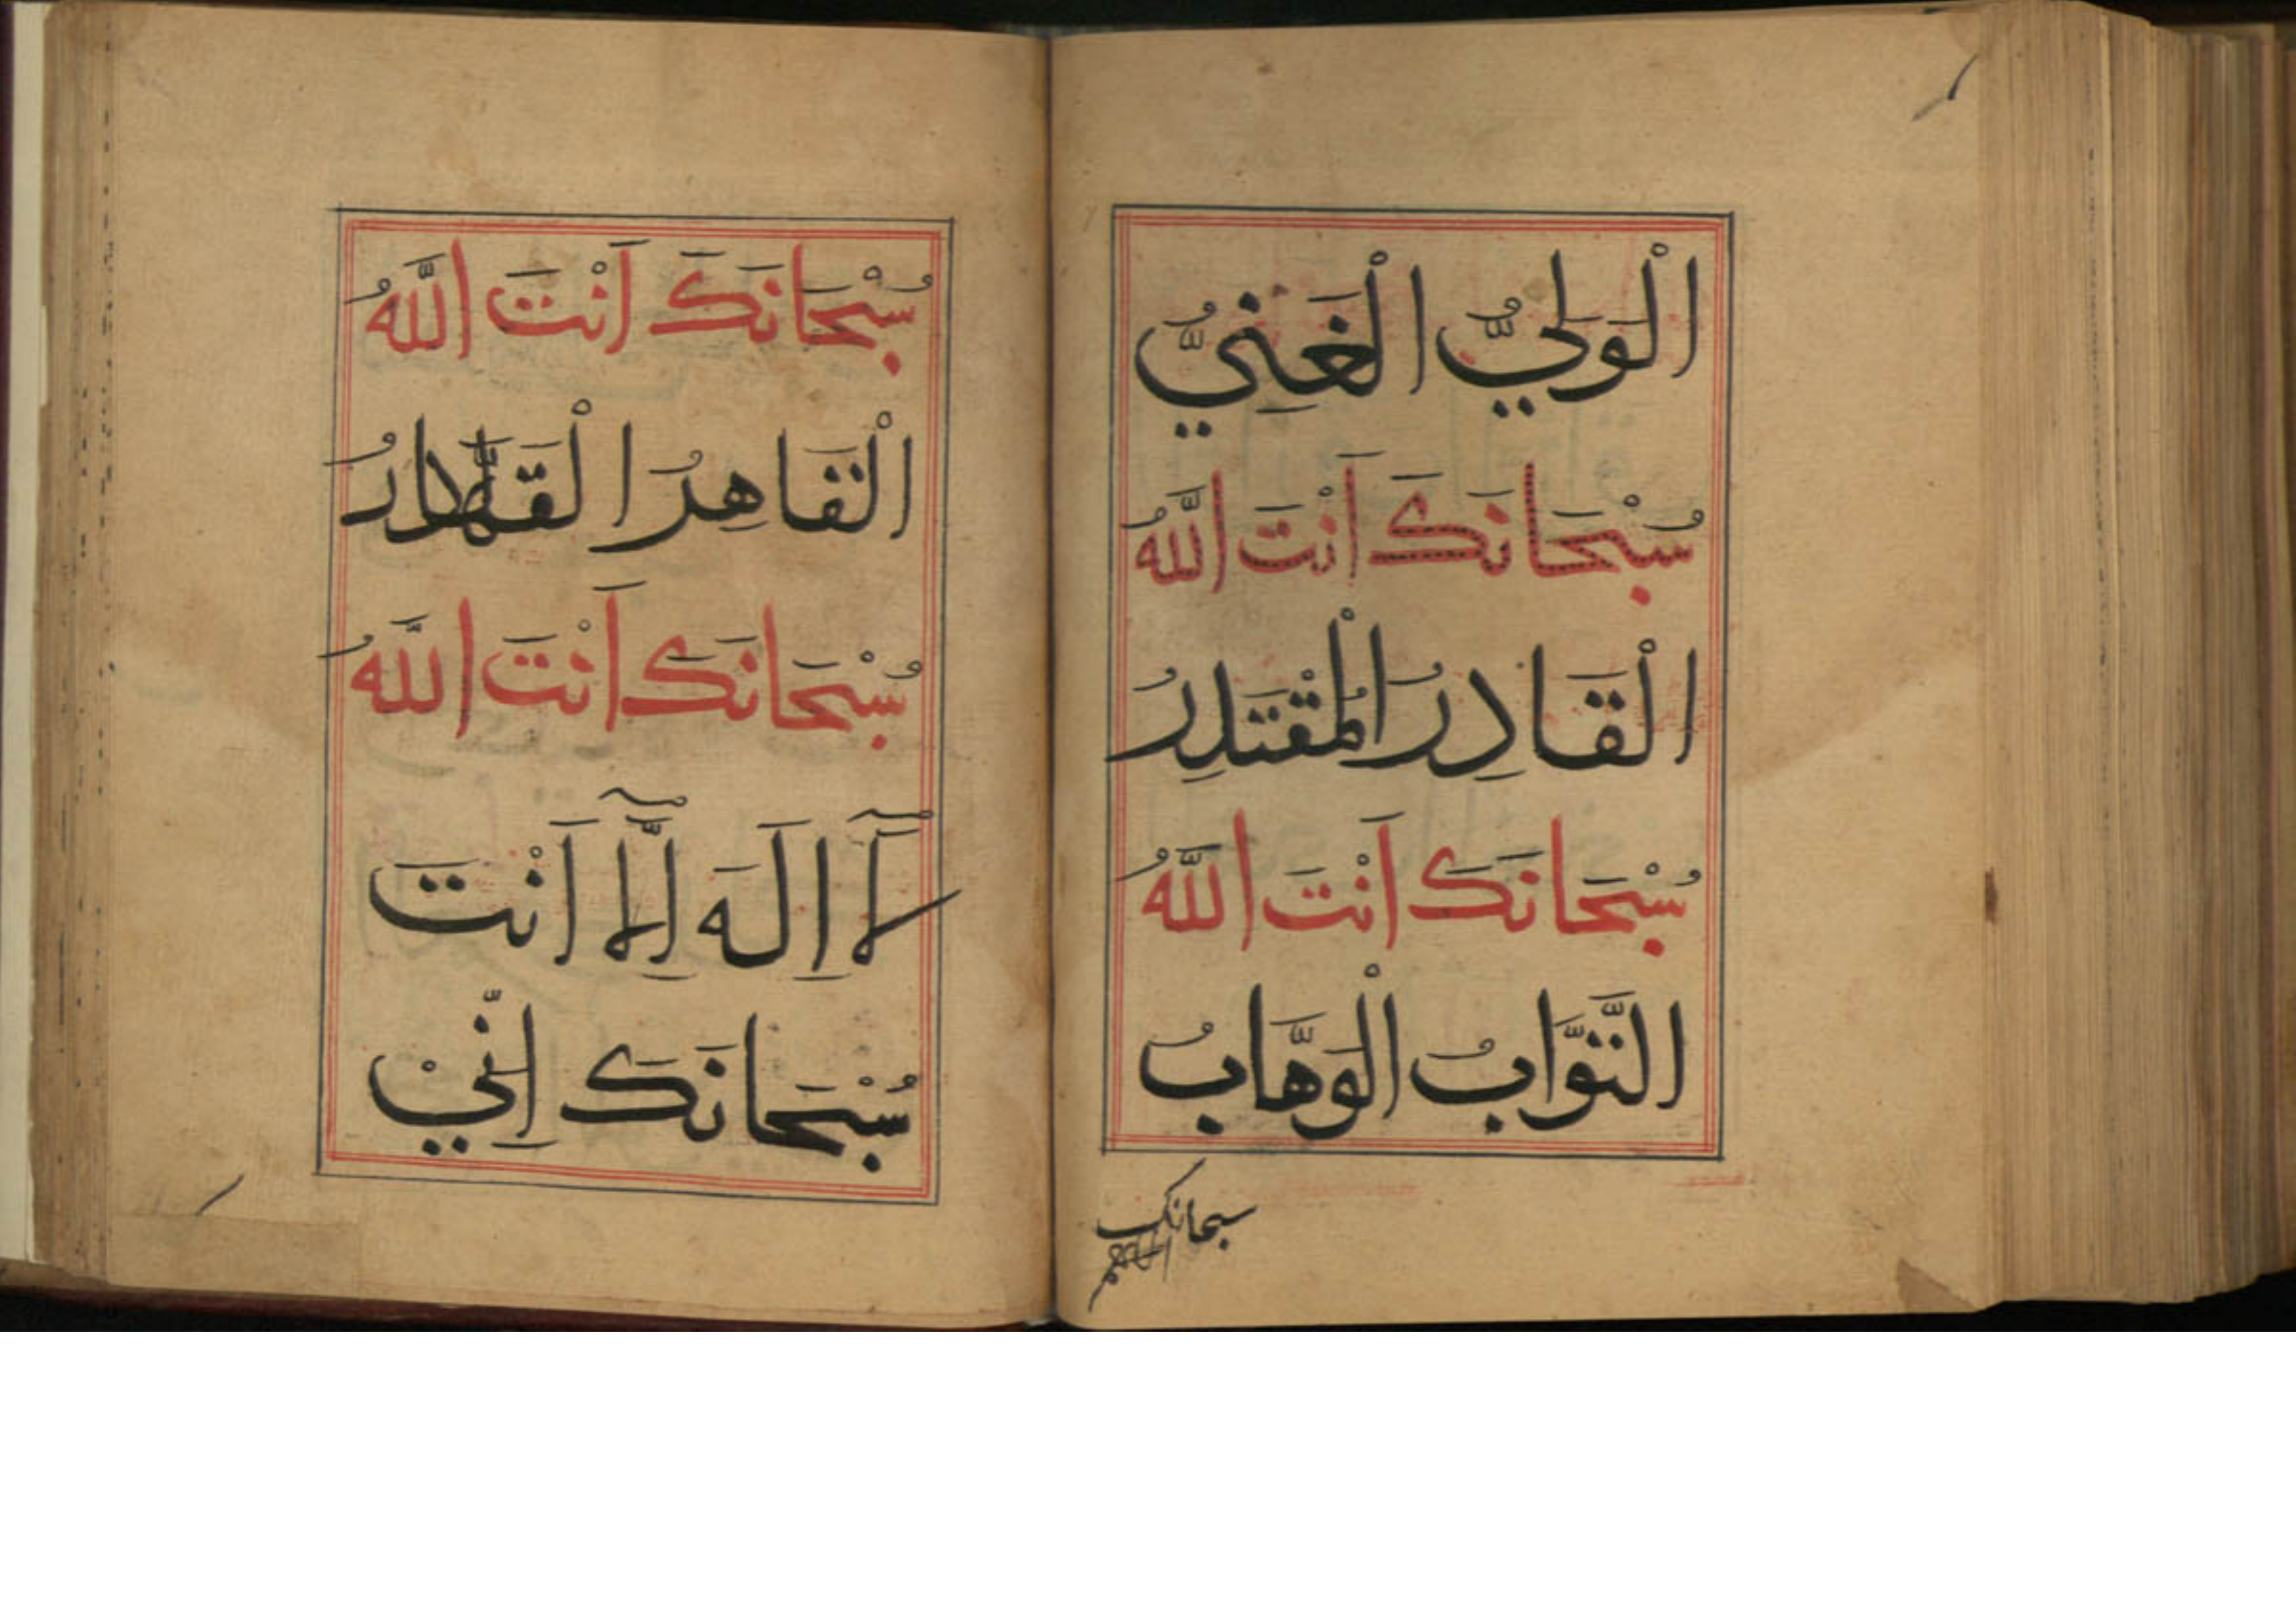 الْوَلِيُّ الْغَنِيُّ
سُبْحَانَكَ اَنْتَ اللَّهُ
الْقَادِرُ الْمُقْتَدِرُ
سُبْحَانَكَ اَنْتَ اللَّهُ
التَّوَّابُ الْوَهَّابُ
سبحانك
سُبْحَانَكَ اَنْتَ اللَّهُ
الْقَاهِرُ الْقَهَّارُ
سُبْحَانَكَ اَنْتَ اللَّهُ
لَآ اِلَهَ اِلَّآ اَنْتَ
سُبْحَانَكَ اِنِّيْ